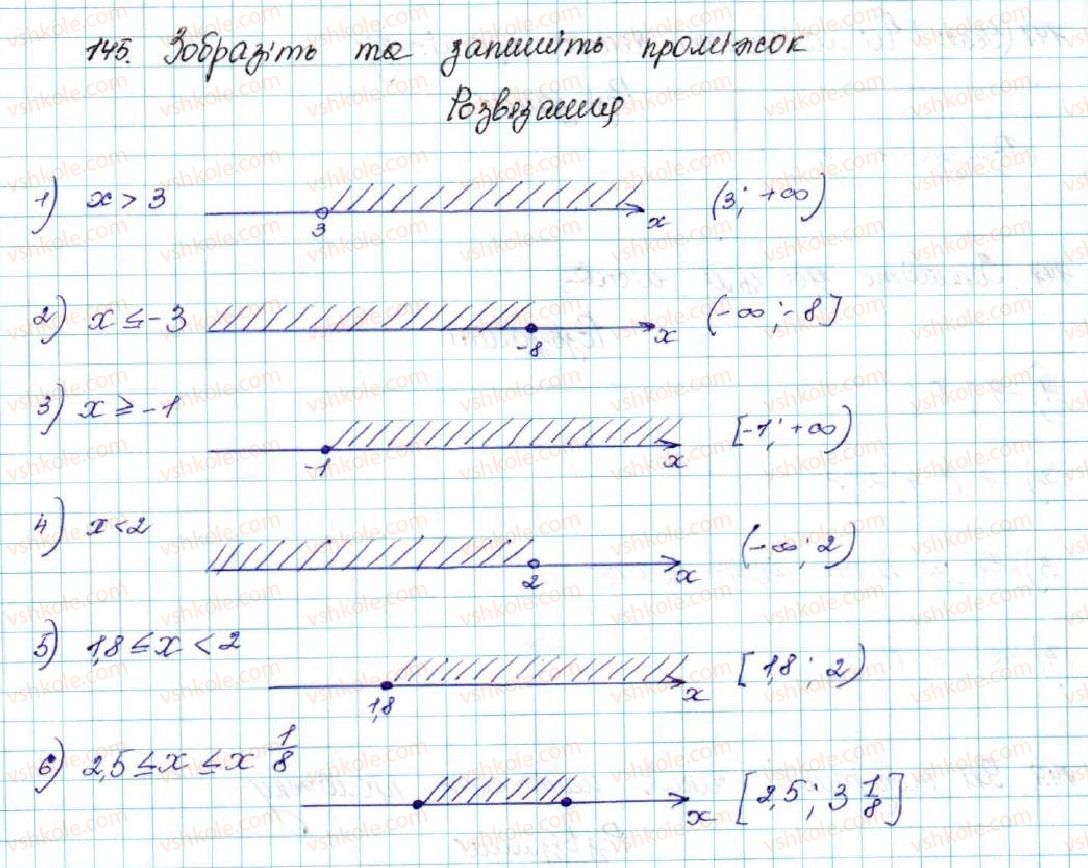 145. Зобразіть та запишіть проміжок
Розвязання
1) x > 3
3
x
(3; +∞)
2) x ≤ -3
-8
x
(-∞; -8]
3) x ≥ -1
-1
x
[-1; +∞)
4) x < 2
2
x
(-∞; 2)
5) 1,8 ≤ x < 2
1,8
x
[1,8; 2)
6) 2,5 ≤ x ≤ x 1/8
x
[2,5; 3 1/8]